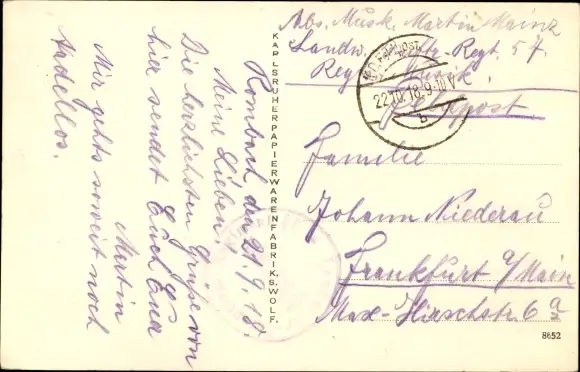 Abs. Musk. Martin Mainz
Landw. Inftr.-Regt. 57.
Reg.
Feldpost.
K.D. Feldpost
22.10.18.9-10 V
b
Familie
Johann Niederau
Frankfurt a/Main
Max-Hirschstr. 6 a
8652
KARLSRUHER PAPIERWARENFABRIK S. WOLF.
Rombach, den 21.9.18.
Meine Lieben!
Die herzlichsten Grüße von
hier sendet Euch Euer
Martin
Mir gehts soweit noch
tadellos.